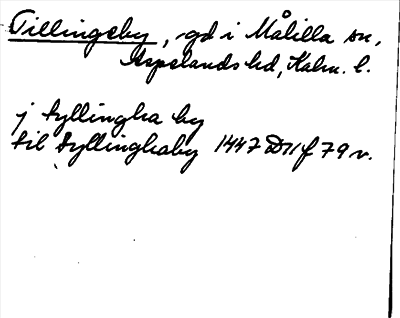 Tillingeby, gd i Målilla sn,
Aspelands hd, Kalm. l.
j tyllingha by
til tyllinghaby 1447 D11f 79 v.